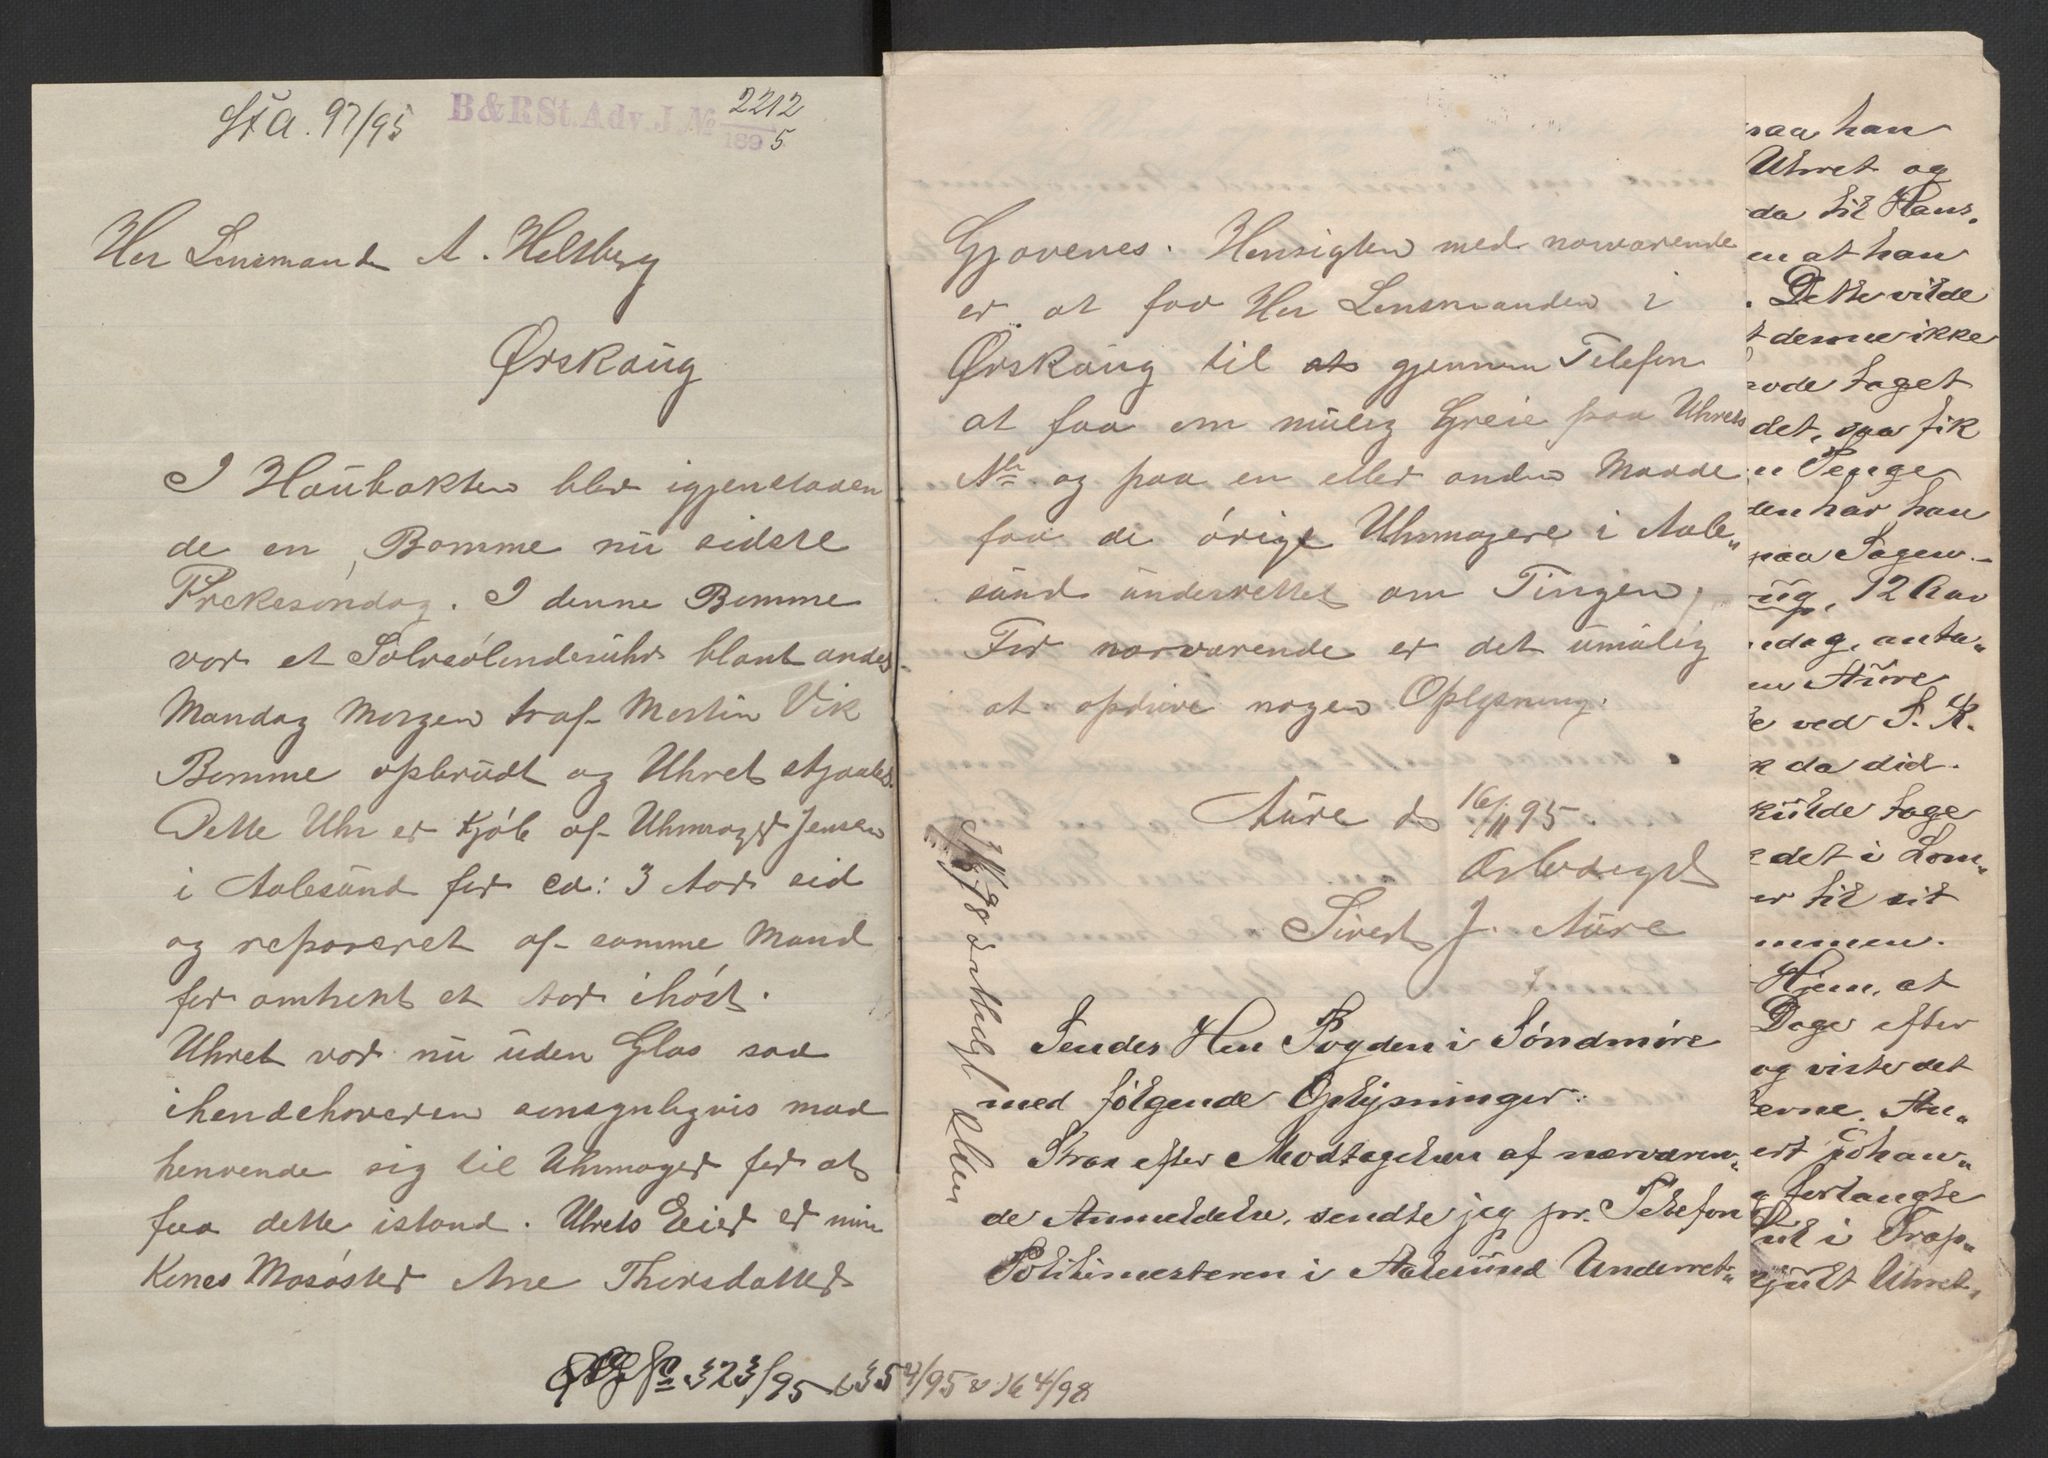 StA. 97/95
B & R St. Adv. J. № 2212
1895
Her Lensmand A. Helsberg
Ørskoug
I Haubakken blev igjenstaaen
de en Bomme nu sidste
Prekesøndag. I denne Bomme
var et Sølvsølenderuhr blant andet
Mandag Morgen traf Martin Vik
Bomme opbrudt og Uhret stjaalet.
Dette Uhr er kjøb af Uhrmager Jensen
i Aalesund for ca: 3 Aar sid
og repareret af samme Mand
for omtrent et Aar ihøst.
Uhret var nu uden Glas saa
ihendehaveren sansynligvis maa
henvende sig til Uhrmager for at
faa dette istand. Uhrets Eier er min
Kones Mosøster Ane Thorsdatter
№ 323/95 354/95 164/98
Gjævenes. Hensigten med nærværende
er at faa Her Lensmanden i
Ørskoug til at gjennem Telefon
at faa om mulig Greie paa Uhrets
Nr. og paa en eller anden Maade
faa de øvrige Uhrmagere i Aale„
sund underrettet om Tingen.
For nærværende er det umulig
at opdrive nogen Oplysning.
Aure d 16/11 95.
Ærbødigst
Sivert J. Aure
Sendes Herr Fogden i Søndmøre
med følgende Oplysninger:
Strax efter Modtagelsen af nærværen„
de Anmeldelse, sendte jeg pr. Telefon
Politimesteren i Aalesund Underret„
saa han
Uhret og
da til Hans„
en at han
. Dette vilde
t denne ikke
taget
det, saa fik
n Penge
den har han
paa Sagen.–
12 Aar
ndag, anta„
en Aure
e ved S. K.
k da did.
kulde tage
e det i Lom„
er til sit
mmen.
Hjem, at
Dage efter
og viste det
erne. An„
ert Johan„
forlangte
i Trap„
njult Uhret,